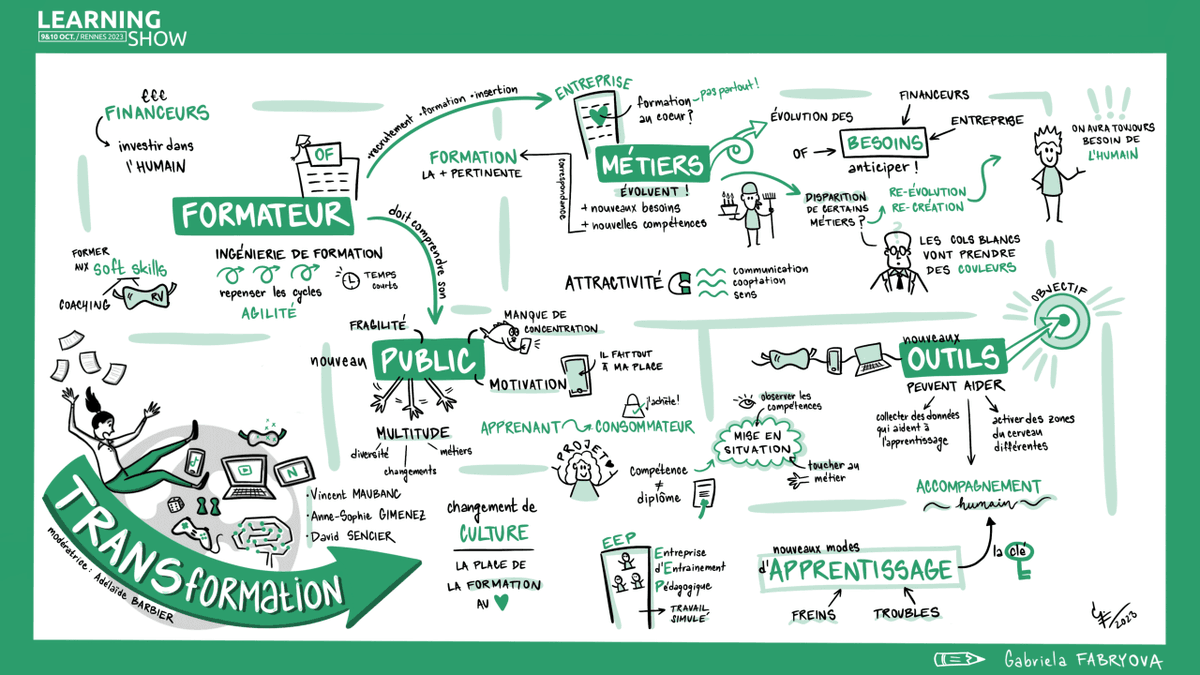 LEARNING
9&10 OCT. / RENNES 2023
SHOW
FINANCEURS
investir dans
l'HUMAIN
OF
FORMATEUR
INGÉNIERIE DE FORMATION
repenser les cycles
AGILITÉ
TEMPS
courts
FORMER
AUX soft skills
COACHING
RV
•recrutement •formation •insertion
doit comprendre son
ENTREPRISE
formation
au coeur?
pas partout!
FORMATION
LA + PERTINENTE
correspondance
MÉTIERS
ÉVOLUENT!
+ nouveaux besoins
+ nouvelles compétences
ÉVOLUTION DES
FINANCEURS
ENTREPRISE
OF
BESOINS
anticiper!
DISPARITION
DE CERTAINS
MÉTIERS?
RE-ÉVOLUTION
RE-CRÉATION
ON AURA TOUJOURS
BESOIN DE
L'HUMAIN
LES COLS BLANCS
VONT PRENDRE
DES COULEURS
ATTRACTIVITÉ
communication
cooptation
sens
FRAGILITÉ
MANQUE DE
CONCENTRATION
nouveau
PUBLIC
MOTIVATION
IL FAIT TOUT
À MA PLACE
MULTITUDE
diversité
changements
métiers
j'achète!
APPRENANT
CONSOMMATEUR
PROJET
compétence
≠
diplôme
observer les
compétences
MISE EN
SITUATION
toucher au
métier
OBJECTIF
nouveaux
OUTILS
PEUVENT AIDER
collecter des données
qui aident à
l'apprentissage
activer des zones
du cerveau
différentes
ACCOMPAGNEMENT
humain
la clé
nouveaux modes
d'APPRENTISSAGE
FREINS
TROUBLES
EEP
Entreprise
d'Entrainement
Pédagogique
TRAVAIL
SIMULÉ
changement de
CULTURE
LA PLACE DE
LA FORMATION
AU
N
• Vincent MAUBANC
• Anne-Sophie GIMENEZ
• David SENCIER
TRANSformation
modératrice: Adélaïde BARBIER
2023
Gabriela FABRYOVA